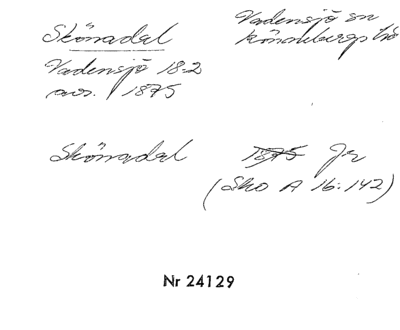 Skönadal
Vadensjö sn
Rönnebergs hd
Vadensjö 18:2
avs. 1875
Skönadal 1875 Jr
(Sko A 16:142)
Nr 24129